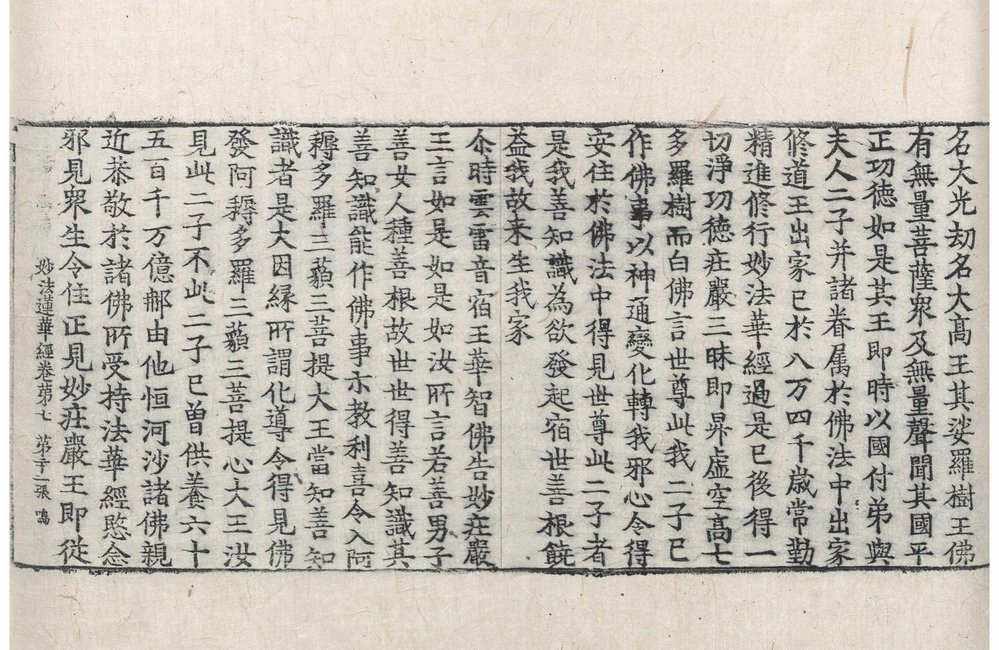 名大光劫名大高王其娑羅樹王佛
有無量菩薩衆及無量聲聞其國平
正功德如是其王即時以國付弟與
夫人二子并諸眷属於佛法中出家
修道王出家已於八万四千歳常勤
精進修行妙法華經過是已後得一
切淨功德莊嚴三昧即昇虛空高七
多羅樹而白佛言世尊此我二子已
作佛事以神通變化轉我邪心令得
安住於佛法中得見世尊此二子者
是我善知識為欲發起宿世善根饒
益我故来生我家
尒時雲雷音宿王華智佛告妙莊嚴
王言如是如是如汝所言若善男子
善女人種善根故世世得善知識其
善知識能作佛事示教利喜令入阿
耨多羅三藐三菩提大王當知善知
識者是大因縁所謂化導令得見佛
發阿耨多羅三藐三菩提心大王汝
見此二子不此二子已曽供養六十
五百千万億那由他恒河沙諸佛親
近恭敬於諸佛所受持法華經愍念
妙法蓮華經卷第七 張 鳴
邪見衆生令住正見妙莊嚴王即從